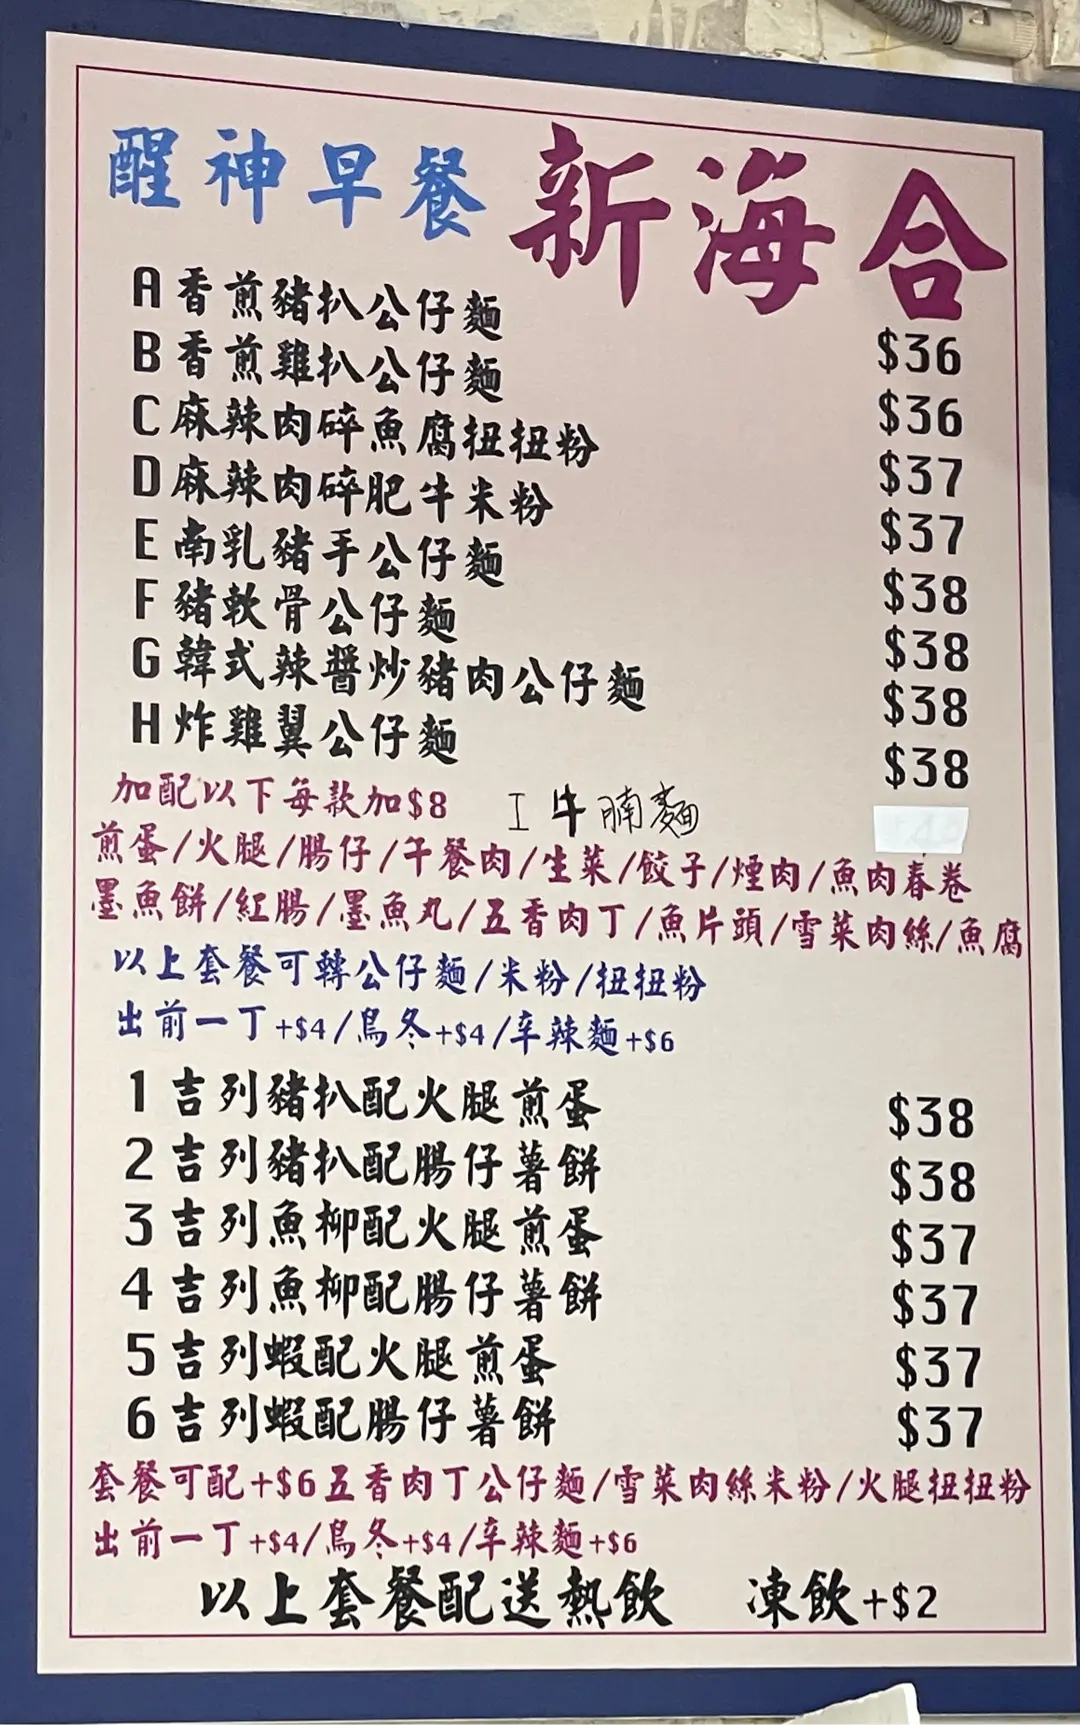 醒神早餐 新海合
A 香煎豬扒公仔麵 $36
B 香煎雞扒公仔麵 $36
C 麻辣肉碎魚腐扭扭粉 $37
D 麻辣肉碎肥牛米粉 $37
E 南乳豬手公仔麵 $38
F 豬軟骨公仔麵 $38
G 韓式辣醬炒豬肉公仔麵 $38
H 炸雞翼公仔麵 $38
加配以下每款加$8 I 牛腩麵
煎蛋/火腿/腸仔/午餐肉/生菜/餃子/煙肉/魚肉春卷
墨魚餅/紅腸/墨魚丸/五香肉丁/魚片頭/雪菜肉絲/魚腐
以上套餐可轉公仔麵/米粉/扭扭粉
出前一丁+$4/烏冬+$4/辛辣麵+$6
1 吉列豬扒配火腿煎蛋 $38
2 吉列豬扒配腸仔薯餅 $38
3 吉列魚柳配火腿煎蛋 $37
4 吉列魚柳配腸仔薯餅 $37
5 吉列蝦配火腿煎蛋 $37
6 吉列蝦配腸仔薯餅 $37
套餐可配+$6五香肉丁公仔麵/雪菜肉絲米粉/火腿扭扭粉
出前一丁+$4/烏冬+$4/辛辣麵+$6
以上套餐配送熱飲 凍飲+$2